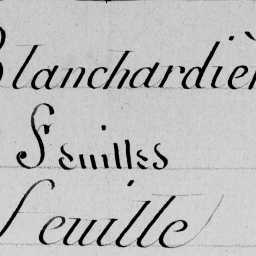 Blanchardiè
Feuilles
feuille